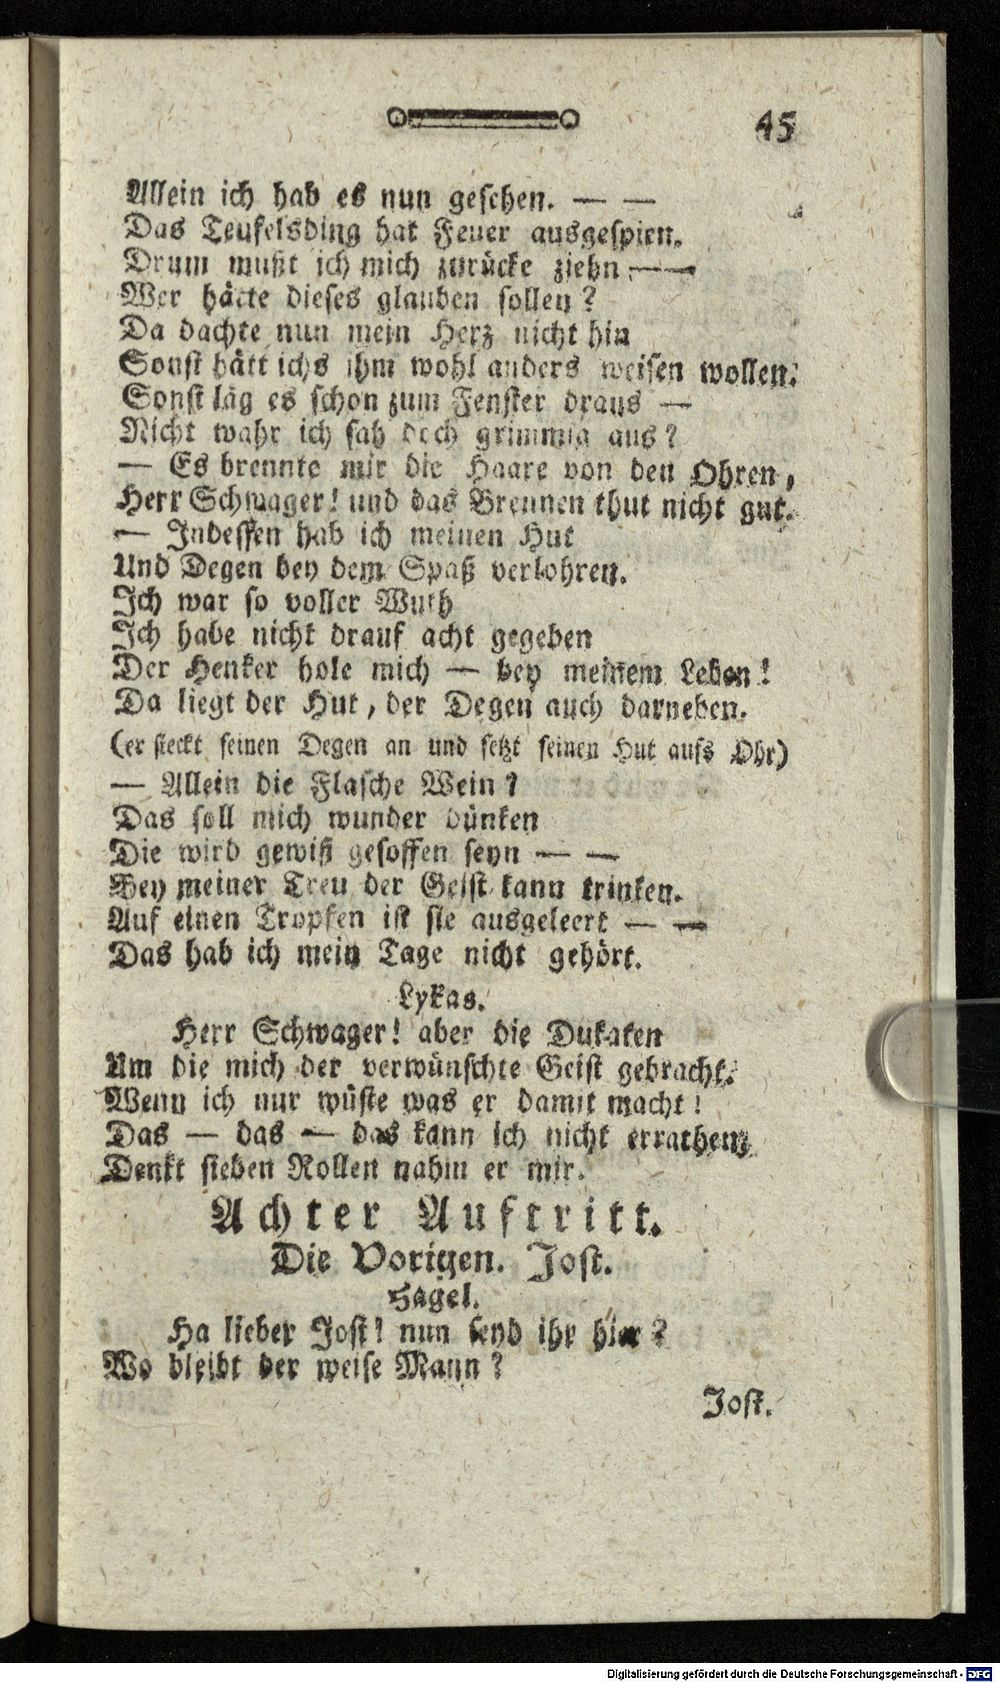 45
Allein ich hab es nun gesehen. — —
Das Teufelsding hat Feuer ausgespien.
Drum mußt ich mich zurücke ziehn — —
Wer hätte dieses glauben sollen?
Da dachte nun mein Herz nicht hin
Sonst hätt ichs ihm wohl anders weisen wollen.
Sonst läg es schon zum Fenster draus —
Nicht wahr ich sah doch grimmig aus?
— Es brennte mir die Haare von den Ohren,
Herr Schwager! und das Brennen thut nicht gut.
— Indessen hab ich meinen Hut
Und Degen bey dem Spaß verlohren.
Ich war so voller Wuth
Ich habe nicht drauf acht gegeben
Der Henker hole mich — bey meinem Leben!
Da liegt der Hut, der Degen auch darneben.
(er steckt seinen Degen an und setzt seinen Hut aufs Ohr)
— Allein die Flasche Wein?
Das soll mich wunder dünken
Die wird gewiß gesoffen seyn — —
Bey meiner Treu der Geist kann trinken.
Auf einen Tropfen ist sie ausgeleert — —
Das hab ich mein Tage nicht gehört.
Lykas.
Herr Schwager! aber die Dukaten
Um die mich der verwünschte Geist gebracht.
Wenn ich nur wüste was er damit macht!
Das — das — das kann ich nicht errathen,
Denkt sieben Rollen nahm er mir.
Achter Auftritt.
Die Vorigen. Jost.
Hagel.
Ha lieber Jost! nun seyd ihr hier?
Wo bleibt der weise Mann?
Jost.
Digitalisierung gefördert durch die Deutsche Forschungsgemeinschaft - DFG